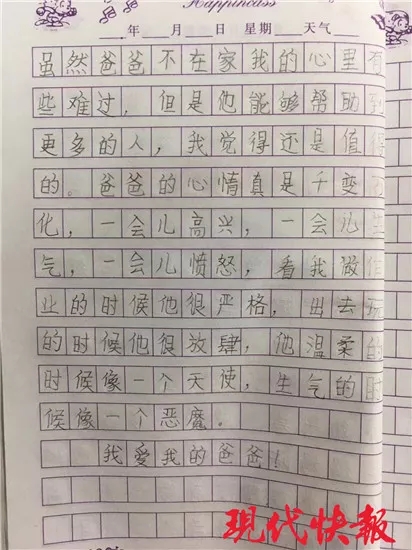 Happiness
年 月 日 星期 天气
虽然爸爸不在家我的心里有
些难过,但是他能够帮助到
更多的人,我觉得还是值得
的。爸爸的心情真是千变万
化,一会儿高兴,一会儿生
气,一会儿愤怒,看我做作
业的时候他很严格,出去玩
的时候他很放肆,他温柔的
时候像一个天使,生气的时
候像一个恶魔。
我爱我的爸爸!
现代快報